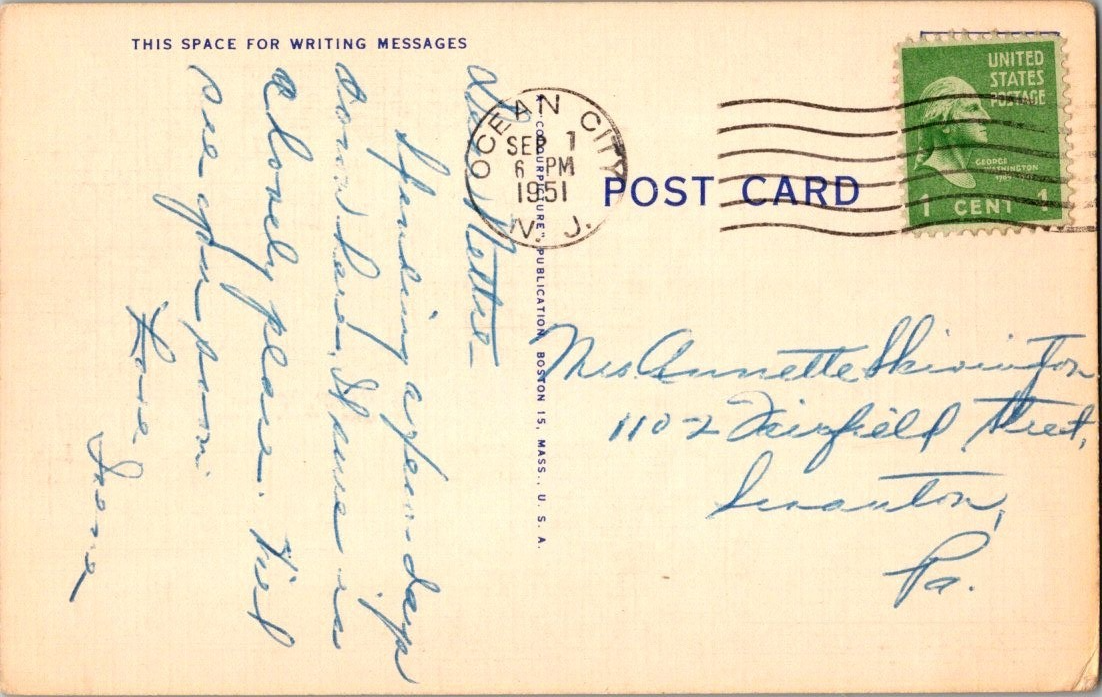 THIS SPACE FOR WRITING MESSAGES
Dear Nettie—
Spending a few days
down here. It sure is
a lovely place. Will
see you soon.
Love
Irene
"COLOURPICTURE" PUBLICATION, BOSTON 15, MASS., U. S. A.
OCEAN CITY
SEP 1
6 PM
1951
N. J.
POST CARD
UNITED
STATES
POSTAGE
GEORGE
WASHINGTON
1 CENT 1
Mrs Annette Skivington
1102 Fairfield Street,
Scranton,
Pa.